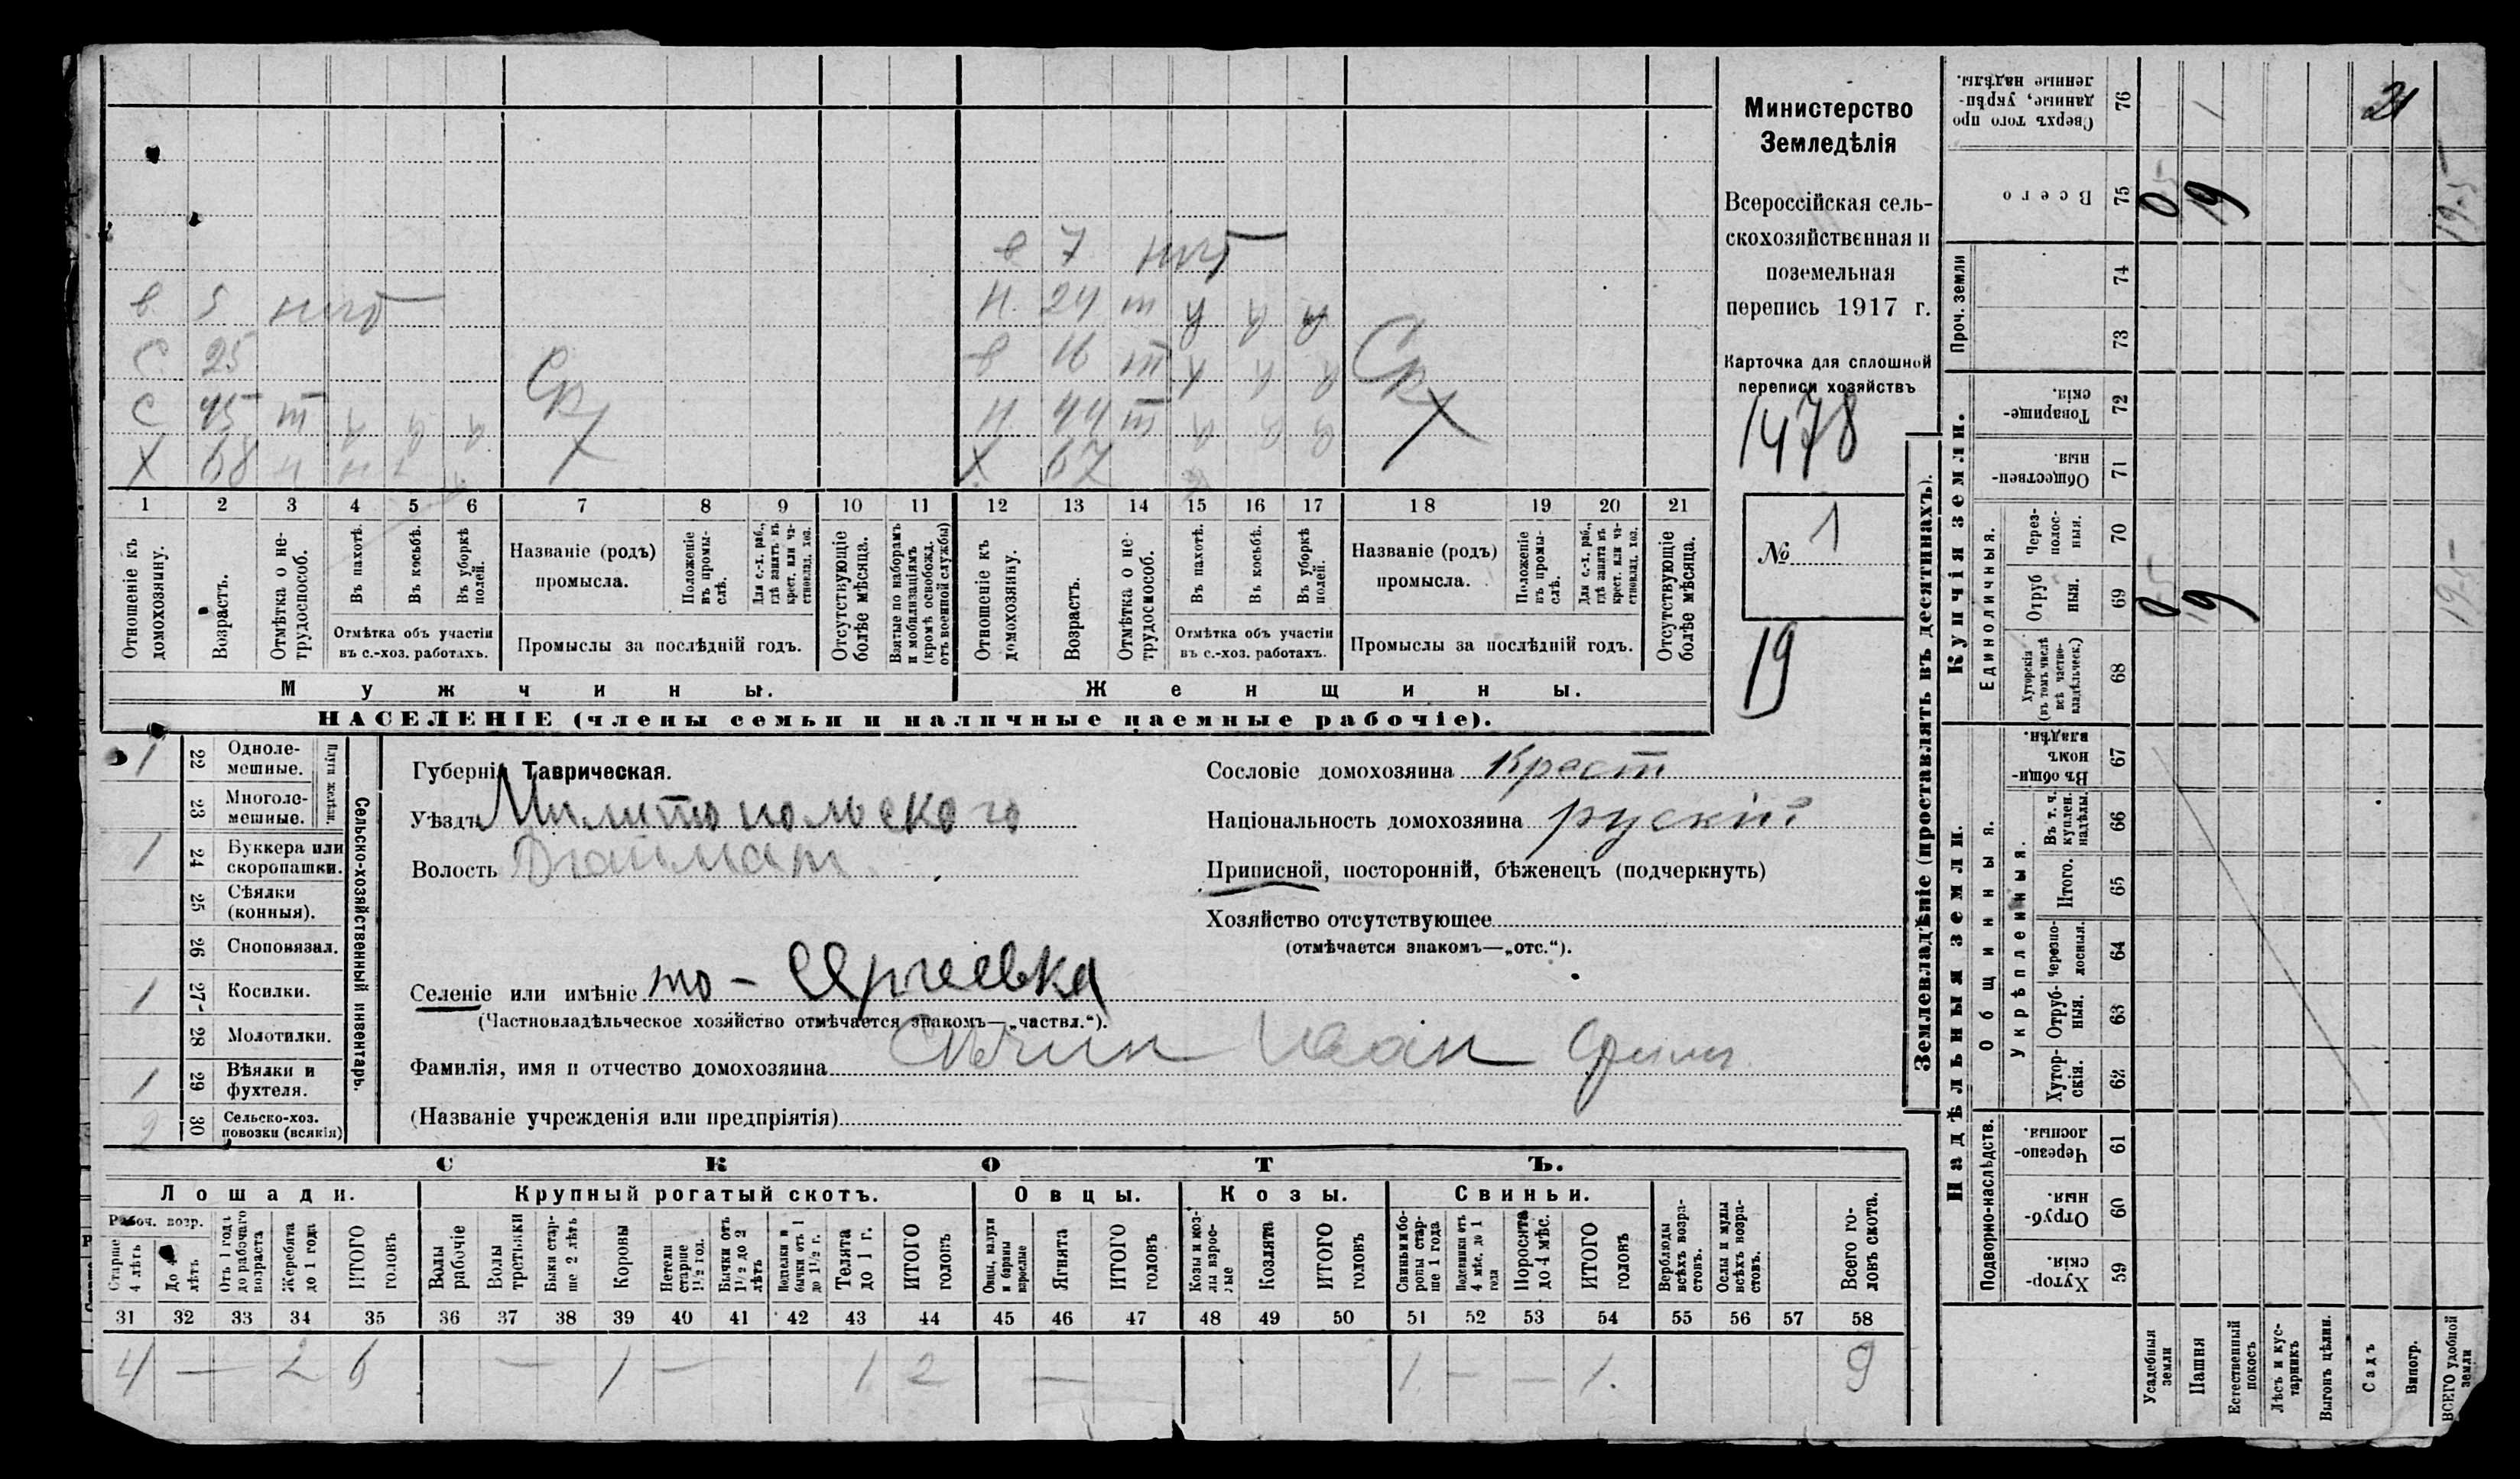 в 7 нит
в. 5 нит Н. 24 п
С 25 в 16 п
С 45 п Н 44 п
Х 68 Х 67
Ср Ср
1 2 3 4 5 6 7 8 9 10 11 12 13 14 15 16 17 18 19 20 21
Отношеніе къ домохозяину.
Возрастъ.
Отмѣтка о нетрудоспособ.
Въ пахотѣ.
Въ косьбѣ.
Въ уборкѣ полей.
Отмѣтка объ участіи
въ с.-хоз. работахъ.
Названіе (родъ)
промысла.
Положеніе въ промыслѣ.
Для с.-х. раб., гдѣ занятъ въ крест. или частновлад. хоз.
Промыслы за послѣдній годъ.
Отсутствующіе болѣе мѣсяца.
Взятые по наборамъ и мобилизаціямъ (кромѣ освобожд. отъ военной службы)
Отношеніе къ домохозяину.
Возрастъ.
Отмѣтка о нетрудоспособ.
Въ пахотѣ.
Въ косьбѣ.
Въ уборкѣ полей.
Отмѣтка объ участіи
въ с.-хоз. работахъ.
Названіе (родъ)
промысла.
Положеніе въ промыслѣ.
Для с.-х. раб., гдѣ занята въ крест. или частновлад. хоз.
Промыслы за послѣдній годъ.
Отсутствующіе болѣе мѣсяца.
Мужчины. Женщины.
НАСЕЛЕНІЕ (члены семьи и наличные наемные рабочіе).
Министерство
Земледѣлія
Всероссійская сель-
скохозяйственная и
поземельная
перепись 1917 г.
Карточка для сплошной
переписи хозяйствъ
1478
№ 1
19
1 22 Одноле-
мешные.
23 Многоле-
мешные.
Плуги желѣзн.
1 24 Буккера или
скоропашки.
25 Сѣялки
(конныя).
26 Сноповязал.
1 27 Косилки.
28 Молотилки.
1 29 Вѣялки и
фухтеля.
2 30 Сельско-хоз.
повозки (всякія)
Сельско-хозяйственный инвентарь.
Губернія Таврическая.
Уѣздъ Милитопольского
Волость
Селеніе или имѣніе то - Сергеевка
(Частновладѣльческое хозяйство отмѣчается знакомъ—„частвл.“).
Фамилія, имя и отчество домохозяина Иван
(Названіе учрежденія или предпріятія)
Сословіе домохозяина Крест
Національность домохозяина рускій
Приписной, посторонній, бѣженецъ (подчеркнуть)
Хозяйство отсутствующее
(отмѣчается знакомъ—„отс.“).
СКОТЪ.
Лошади. Крупный рогатый скотъ. Овцы. Козы. Свиньи.
Рабоч. возр.
Старше 4 лѣтъ
До 4 лѣтъ
Отъ 1 года до рабочаго возраста
Жеребята до 1 года
ИТОГО головъ
Волы рабочіе
Волы третьяки
Быки старше 2 лѣтъ
Коровы
Нетели старше 1½ год.
Бычки отъ 1½ до 2 лѣтъ
Телята до 1 г.
ИТОГО головъ
Ягнята
ИТОГО головъ
Козлята
ИТОГО головъ
Свиньи и боровы старше 1 года
Подсвинки отъ 4 мѣс. до 1 года
Поросята до 4 мѣс.
ИТОГО головъ
Верблюды всѣхъ возрастовъ.
Ослы и мулы всѣхъ возрастовъ.
Всего головъ скота.
31 32 33 34 35 36 37 38 39 40 41 42 43 44 45 46 47 48 49 50 51 52 53 54 55 56 57 58
4 — 2 6 — 1 — 1 2 — 1 — — 1. 9
Землевладѣніе (проставлять въ десятинахъ).
Купчія земли.
Надѣльныя земли.
Сверхъ того проданные, укрѣпленные надѣлы. 76 21
Всего 75 0 19 19.5
Проч. земли 74
73
Товарищескія. 72
Общественныя. 71
Единоличныя.
Черезполосныя. 70
Отрубныя. 69 0 19 19.5
Хуторскія (въ томъ числѣ всѣ частновладѣльческ.) 68
Общинныя.
Въ общинномъ владѣн. 67
Укрѣпленныя.
Въ т. ч. куплен. надѣлы. 66
Итого. 65
Черезполосныя. 64
Отрубныя. 63
Хуторскія. 62
Подворно-наслѣдств.
Черезполосныя. 61
Отрубныя. 60
Хуторскія. 59
Усадебныя земли
Пашня
Естественный покосъ
Лѣсъ и кустарникъ
Выгонъ цѣлин.
Садъ
Виногр.
ВСЕГО удобной земли